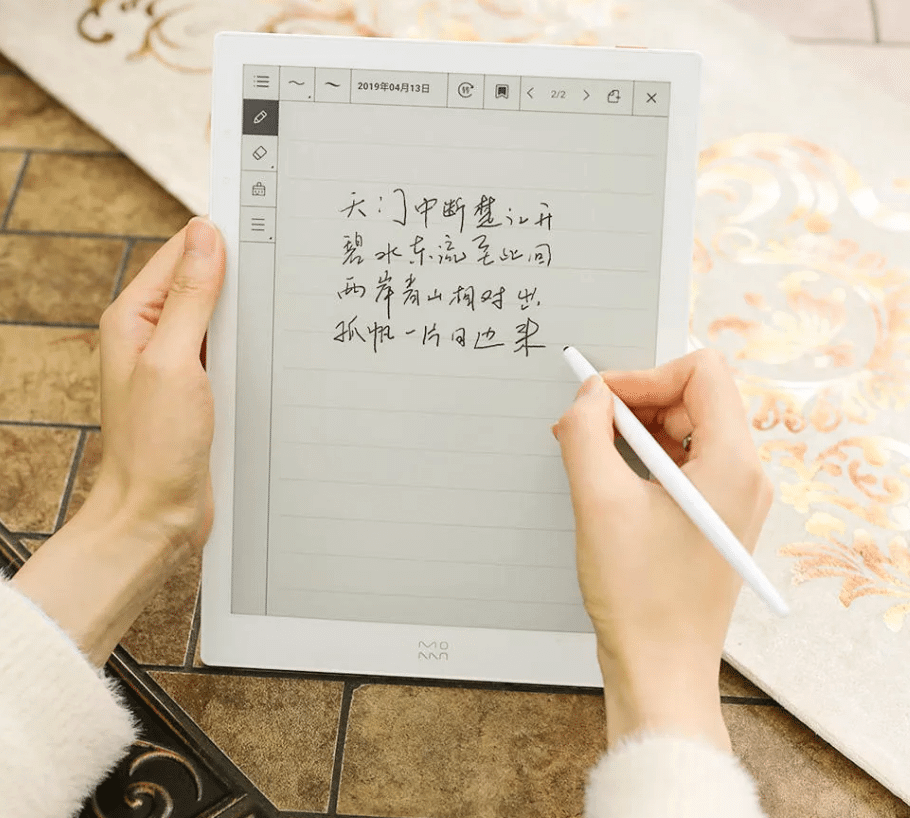 2019年04月13日 转 2/2
天门中断楚江开
碧水东流至此回
两岸青山相对出.
孤帆一片日边来
MOAAN